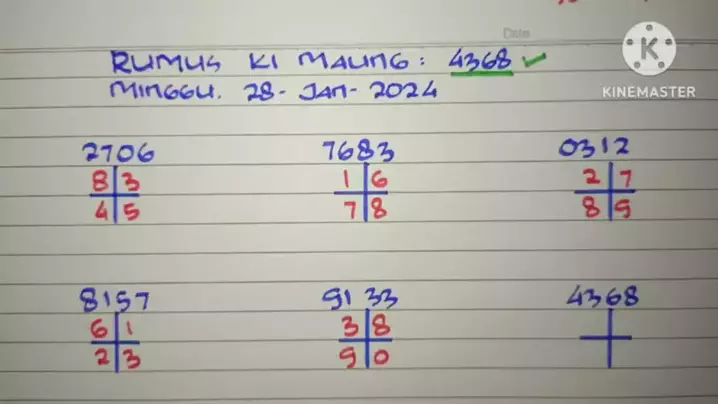 Date
RUMUS KI MAUNG: 4368
MINGGU. 28-JAN-2024
KINEMASTER
2706
8 3
4 5
7683
1 6
7 8
0312
2 7
8 9
8157
6 1
2 3
9133
3 8
9 0
4368